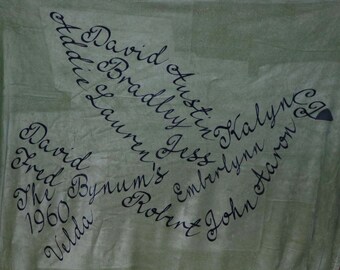 David Austin
Addie Bradley Kalyn
Lauren Jess CJ
David Emberlynn Aaron
Fred Bynum's John
The Robert
1960
Velda